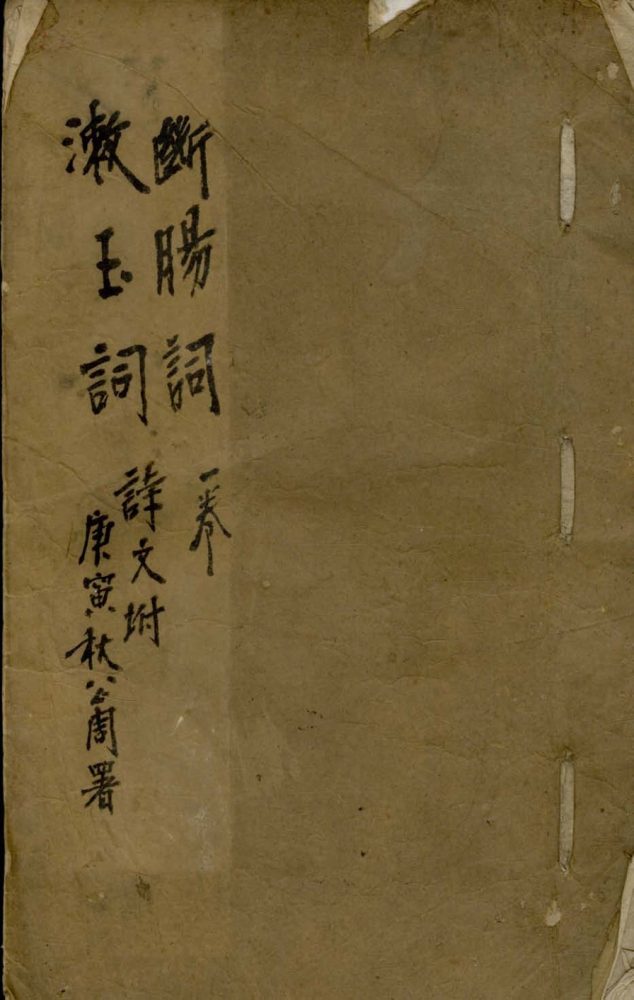 斷腸詞一卷
漱玉詞
詩文坿
庚寅秋公周署